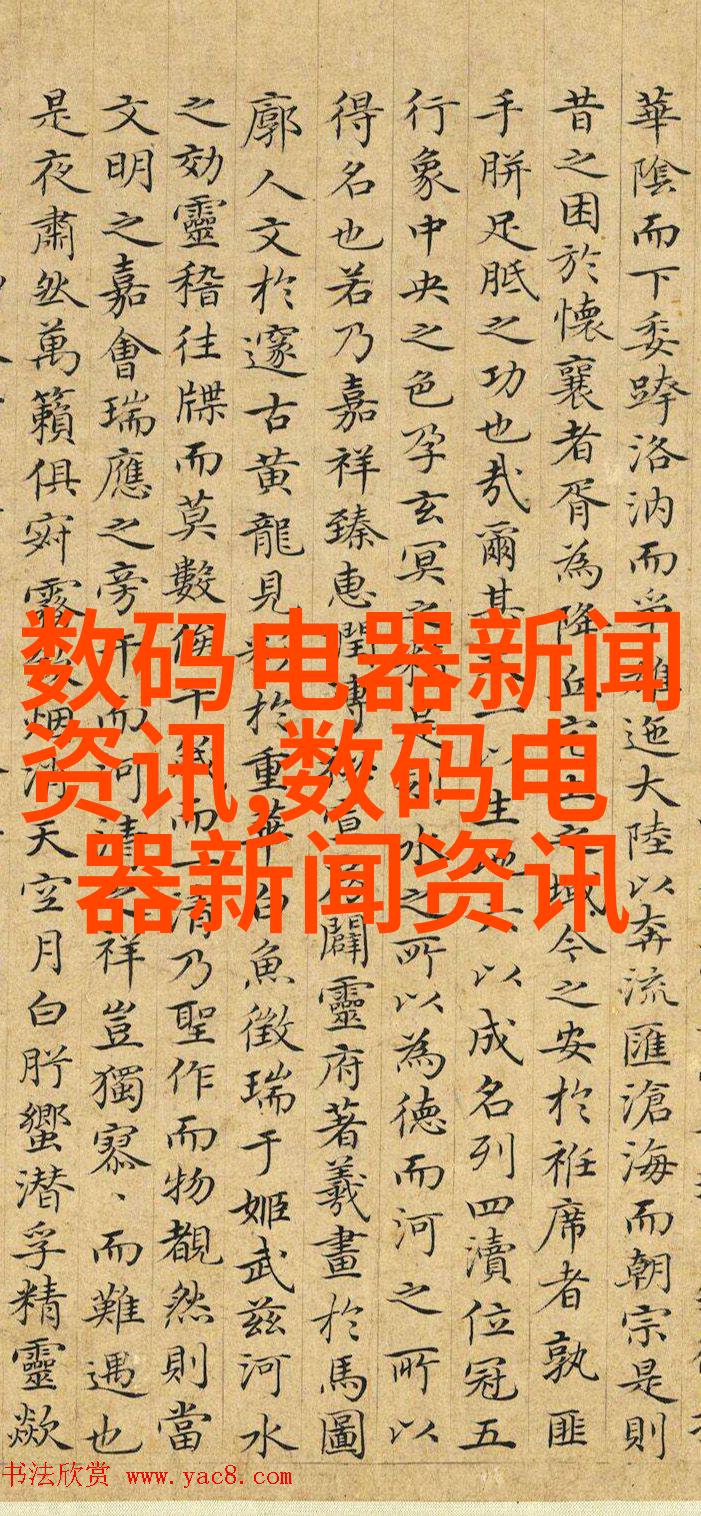 華陰而下委跨洛汭而爭雄迤大陸以奔流匯滄海而朝宗是則
昔之困於懷襄者胥為降丘宅土之域今之安於袵席者孰匪
手胼足胝之功也哉爾其一以生地六以成名列四瀆位冠五
行象中央之色孕玄冥之精是則水之所以為德而河之所以
得名也若乃嘉祥臻惠闓靈府著羲畫於馬圖
廓人文於邃古黃龍見於重華白魚徵瑞于姬武茲河水
之効靈稽往牒而莫數俟千歲而一清乃聖作而物覩然則當
文明之嘉會瑞應之旁午而河清之祥豈獨寥、而難遇也
是夜肅然萬籟俱寂露烟消天空月白肸蠁潜孚精靈歘
数码电器新闻
资讯,数码电
器新闻资讯
书法欣赏 www.yac8.com